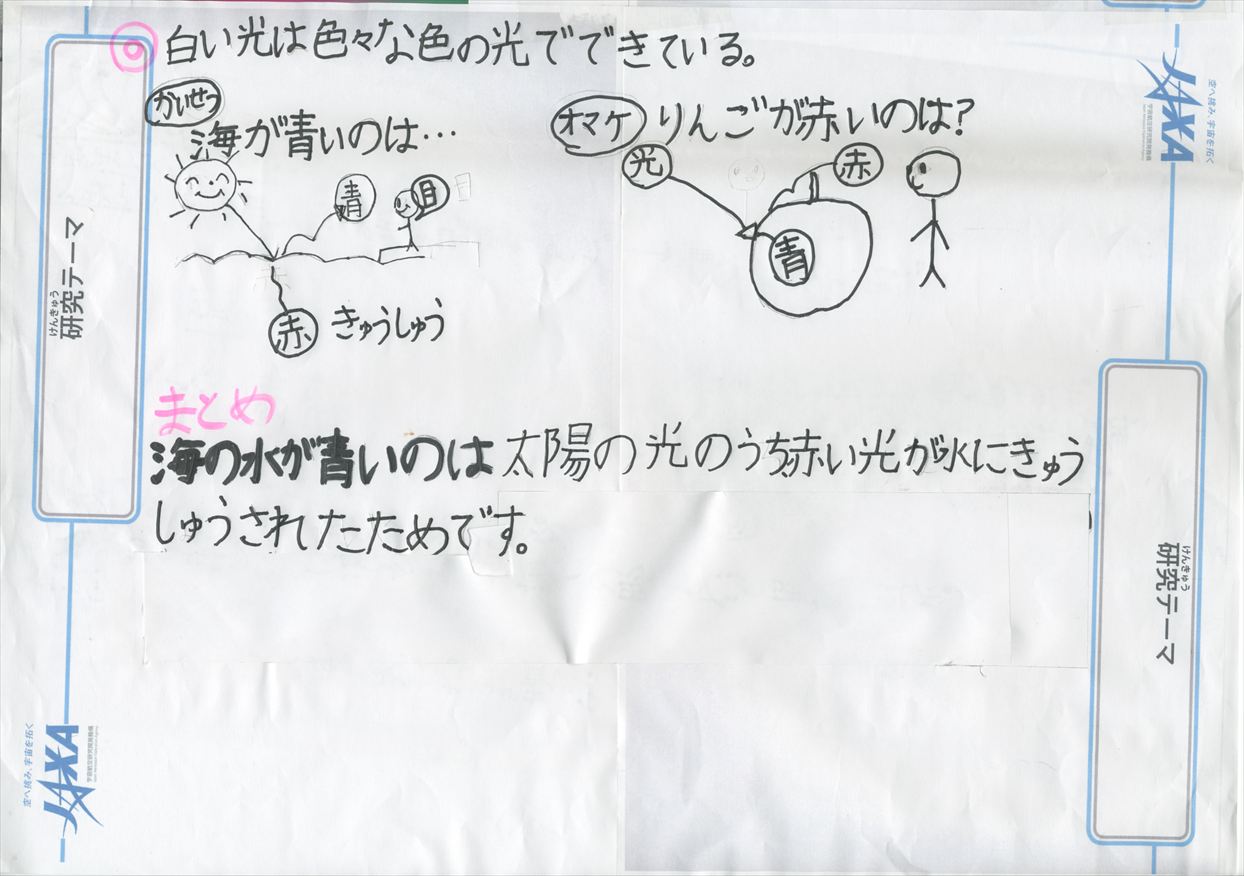 ◎白い光は色々な色の光でできている。
かいせつ
海が青いのは…
青
目
赤 きゅうしゅう
オマケ りんごが赤いのは?
光
赤
青
まとめ
海の水が青いのは太陽の光のうち赤い光が水にきゅう
しゅうされたためです。
けんきゅう
研究テーマ
空へ挑み、宇宙を拓く
JAXA
宇宙航空研究開発機構
空へ挑み、宇宙を拓く
JAXA
宇宙航空研究開発機構
けんきゅう
研究テーマ